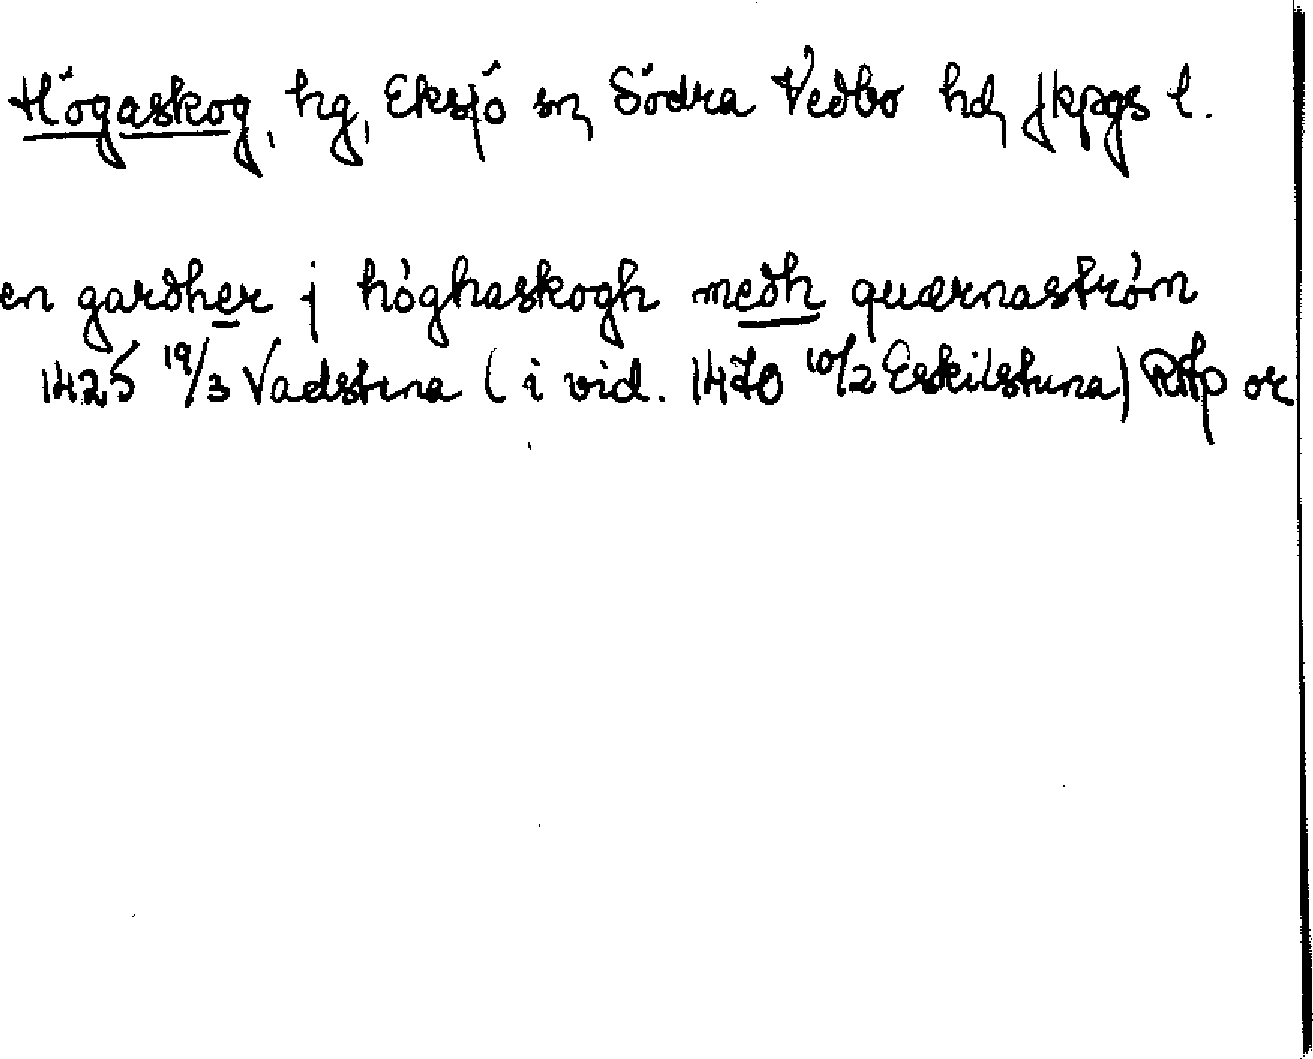 Högaskog, hg, Eksjö sn, Södra Vedbo hd, Jkpgs l.
en garðher j høghaskogh meðh quærnastrøm
1425 19/3 Vadstena (i vid. 1470 10/2 Eskilstuna) RAp or